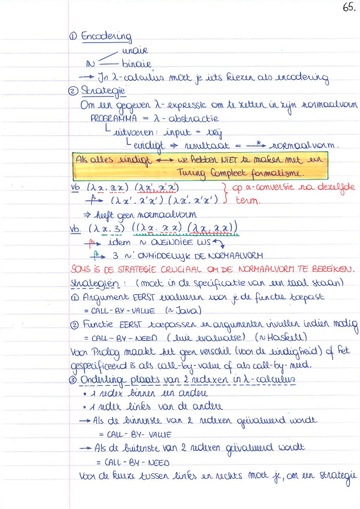 65.
① Encodering
unair
ℕ binaire
→ In λ-calculus moet je iets kiezen als encodering
② Strategie
Om een gegeven λ-expressie om te zetten in zijn normaalvorm
PROGRAMMA = λ-abstractie
↳ uitvoeren: input = wij
↳ eindigt ⇒ resultaat = →* normaalvorm.
Als alles eindigt ↔ we hebben NIET te maken met een
Turing Compleet formalisme.
Vb (λx. xx) (λx'. x'x') } op α-conversie na dezelfde
→β (λx'. x'x') (λx'. x'x') term.
⇒ heeft geen normaalvorm
Vb. (λx. 3) ((λx. xx) (λx. xx))
→β idem ~ ONEINDIGE LUS
→β 3 ~ ONMIDDELLIJK DE NORMAALVORM
SOMS IS DE STRATEGIE CRUCIAAL OM DE NORMAALVORM TE BEREIKEN.
Strategieën: (moet in de specificatie van een taal staan)
① Argument EERST evalueren voor je de functie toepast
= CALL-BY-VALUE (~ Java)
② Functie EERST toepassen en argumenten invullen indien nodig
= CALL-BY-NEED (luie evaluatie) (~ Haskell)
Voor Prolog maakt het geen verschil (voor de eindigheid) of het
gespecificeerd is als call-by-value of als call-by-need.
③ Onderling plaats van 2 redexen in λ-calculus
• 1 redex binnen een andere
• 1 redex links van de andere
→ Als de binnenste van 2 redexen geëvalueerd wordt
= CALL-BY-VALUE
→ Als de buitenste van 2 redexen geëvalueerd wordt
= CALL-BY-NEED
Voor de keuze tussen links en rechts moet je, om een strategie